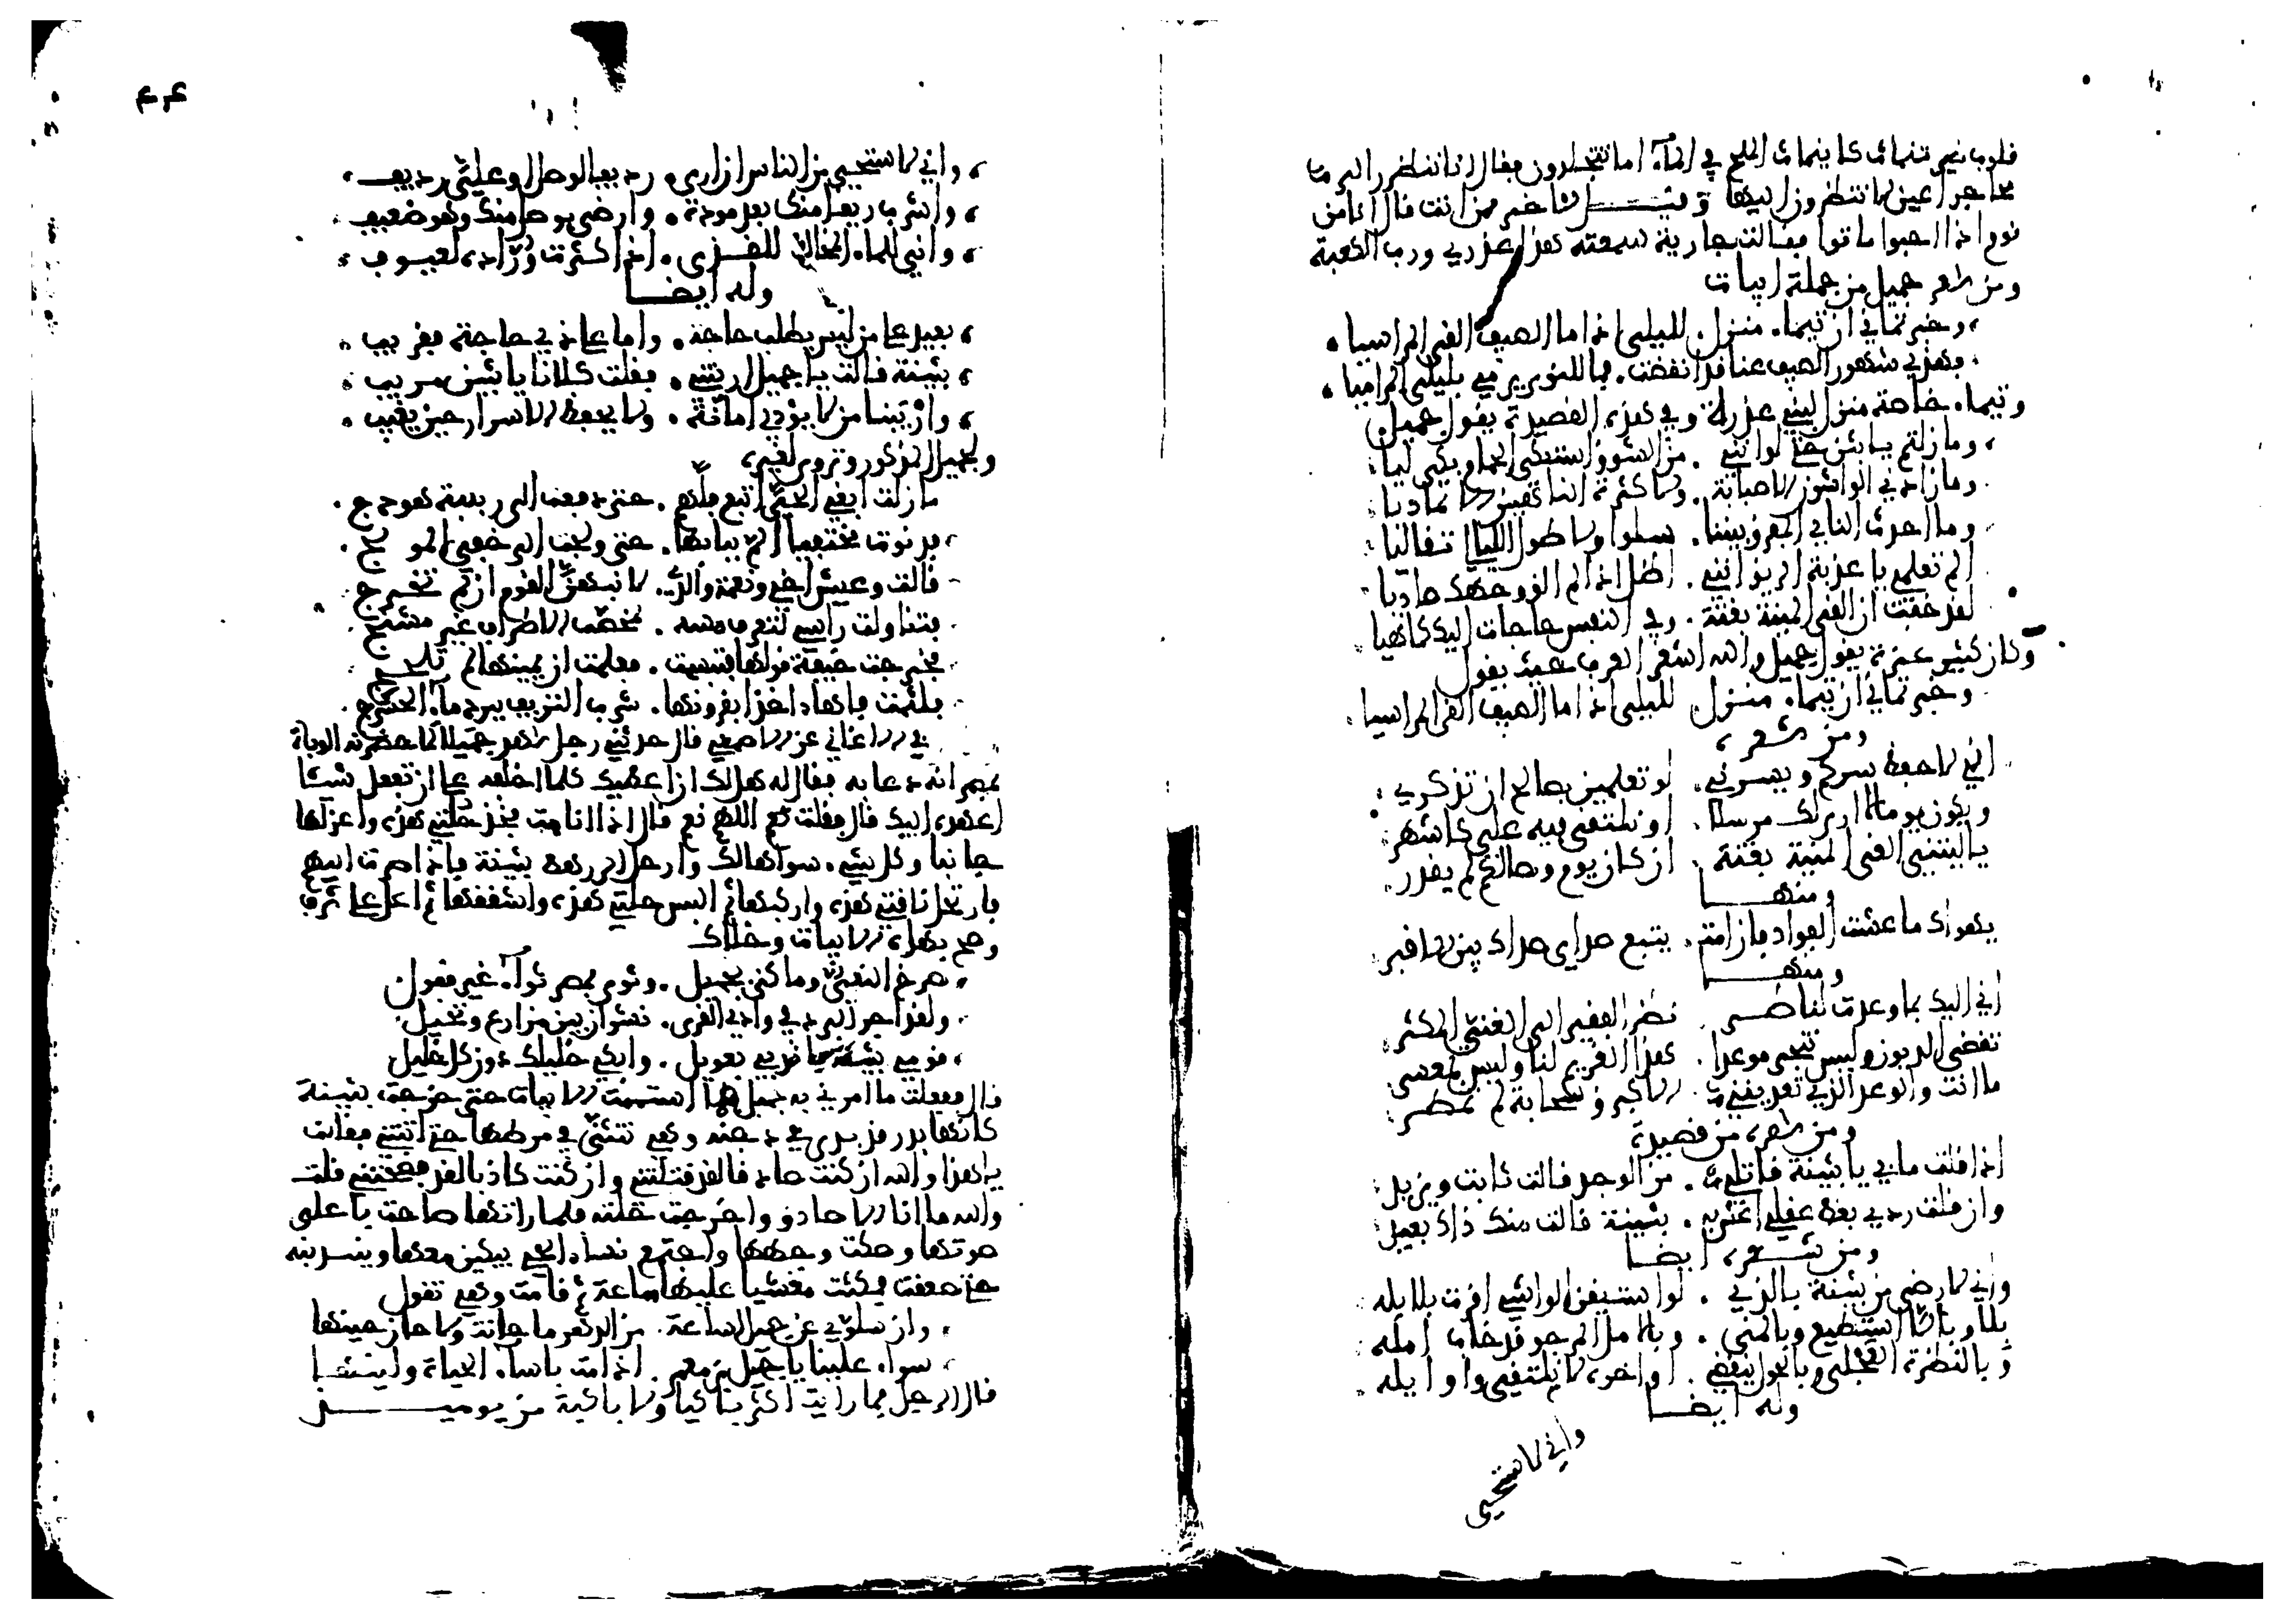 قلوب طير تنماث كما ينماث الملح في الماء اما تتجلدون فقال انا ننظر الى
محاجر اعين لا تنظرون اليها وقيل لآخر ممن انت قال انا من
قوم اذا احبوا ماتوا فقالت جارية سمعته هذا عذري ورب الكعبة
ومن شعر جميل من جملة ابيات
وخبرتماني ان تيماء منزل لليلى اذا ما الصيف القى المراسيا
فهذي شهور الصيف عنا قد انقضت فما للنوى ترمي بليلى المراميا
وتيماء خاصة منزل لبني عذرة وفي هذه القصيدة يقول جميل
وما زلتم يا بثن حتى لو انني من الشوق استبكي الحمام بكى ليا
وما زادني الواشون الا صبابة ولا كثرة الناهين الا تماديا
وما احدث الناي المفرق بيننا سلوا ولا طول الليالي تقاليا
الم تعلمي يا عذبة الريق انني اظل اذا لم الق وجهك صاديا
لقد خفت ان القى المنية بغتة وفي النفس حاجات اليك كما هيا
وكان كثير عزة يقول جميل والله اشعر العرب حيث يقول
وخبرتماني ان تيماء منزل لليلى اذا ما الصيف القى المراسيا
ومن شعره
اني لاحفظ سركم ويسرني لو تعلمين بصالح ان تذكري
ويكون يوم لا ارى لك مرسلا او نلتقي فيه علي كاشهر
يا ليتني القى المنية بغتة ان كان يوم وصالكم لم يقدر
ومنها
يهواك ما عشت الفؤاد فان امت يتبع صداي صداك بين الاقبر
ومنها
اني اليك بما وعدت لناظر نظر الفقير الى الغني المكثر
تقضى الديون وليس تنجز موعدا هذا الغريم لنا وليس بمعسر
ما انت والوعد الذي تعدينني الا كبرق سحابة لم تمطر
ومن شعره من قصيدة
اذا قلت ما بي يا بثينة قاتلي من الوجد قالت ثابت ويزيد
وان قلت ردي بعض عقلي اعش به بثينة قالت منك ذاك بعيد
ومن شعره ايضا
واني لارضى من بثينة بالذي لو استيقن الواشي لقرت بلابله
بلا وبالا استطيع وبالمنى وبالامل المرجو قد خاب امله
وبالنظرة العجلى وبالحول ينقضي اواخره لا نلتقي واوايله
وله ايضا
واني لاستحيي
واني لاستحيي من الناس ان ارى رديفا لوصل او علي رديف
واشرب رنقا منك بعد مودة وارضى بوصل منك وهو ضعيف
واني للماء المخالط للقذى اذا كثرت وراده لعيوف
وله ايضا
بعيد على من ليس يطلب حاجة واما على ذي حاجة فقريب
بثينة قالت يا جميل اربتني فقلت كلانا يا بثين مريب
واريبنا من لا يؤدي امانة ولا يحفظ الاسرار حين يغيب
ولجميل المذكور وتروى لغيره
ما زلت ابغي الحي اتبع فلهم حتى دفعت الى ربيبة هودج
فدنوت مختفيا الم ببابها حتى ولجت الى خفي المولج
قالت وعيش اخي ونعمة والدي لانبهن القوم ان لم تخرج
فتناولت راسي لتعرف مسه بمخضب الاطراف غير مشنج
فخرجت خيفة قولها فتبسمت فعلمت ان يمينها لم تلجج
فلثمت فاها اخذا بقرونها شرب النزيف ببرد ماء الحشرج
في الاغاني عن الاصمعي قال حدثني رجل شهد جميلا لما حضرته الوفاة
بمصر انه دعا به فقال له هل لك ان اعطيك كلما اخلفه على ان تفعل شيئا
اعهده اليك قال فقلت نعم اللهم نعم قال اذا انا مت فخذ حلتي هذه واعزلها
جانبا وكل شيء سواها لك وارحل الى رهط بثينة فاذا صرت اليهم
فارتحل ناقتي هذه واركبها ثم البس حلتي هذه واشققها ثم اعل على شرف
وصح بهذه الابيات وخلاك
صرخ النعي وما كنى بجميل وثوى بمصر ثواء غير قفول
ولقد اجر البرد في وادي القرى نشوان بين مزارع ونخيل
قومي بثينة فاندبي بعويل وابكي خليلك دون كل خليل
قال ففعلت ما امرني به جميل فما استتممت الابيات حتى خرجت بثينة
كانها بدر قد بدى في دجنة وهي تتثنى في مرطها حتى اتتني فقالت
يا هذا والله ان كنت صادقا لقد قتلتني وان كنت كاذبا لقد فضحتني قلت
والله ما انا الا صادق واخرجت حلته فلما راتها صاحت باعلى
صوتها وصكت وجهها واجتمع نساء الحي يبكين معها ويندبنه
حتى صعقت فمكثت مغشيا عليها ساعة ثم قامت وهي تقول
وان سلوي عن جميل لساعة من الدهر ما حانت ولا حان حينها
سواء علينا يا جميل بن معمر اذا مت باساء الحياة ولينها
قال الرجل فما رايت اكثر باكيا ولا باكية من يوميذ